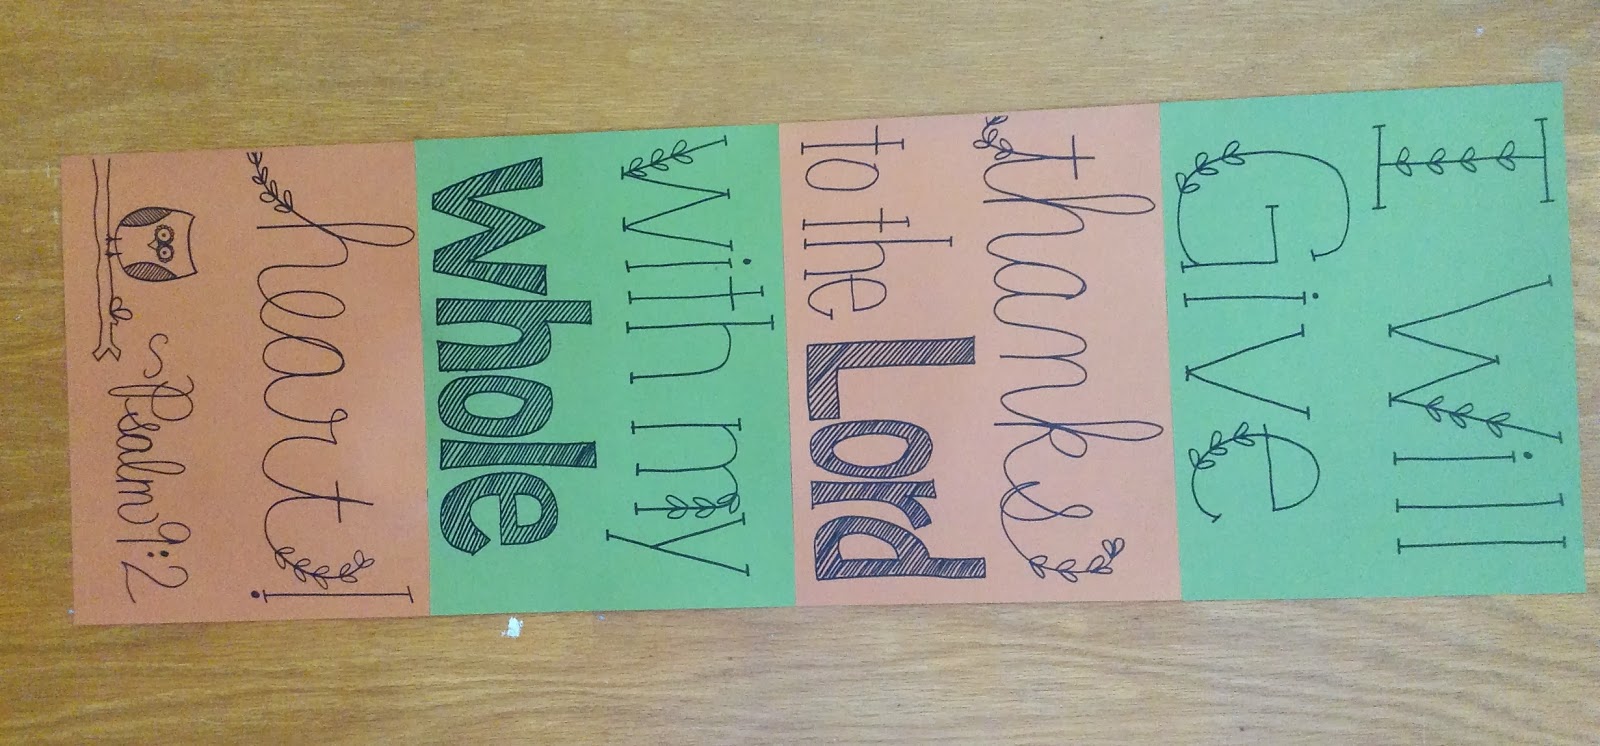 I Will
Give
thanks
to the Lord
With my
Whole
heart!
~Psalm 9:2